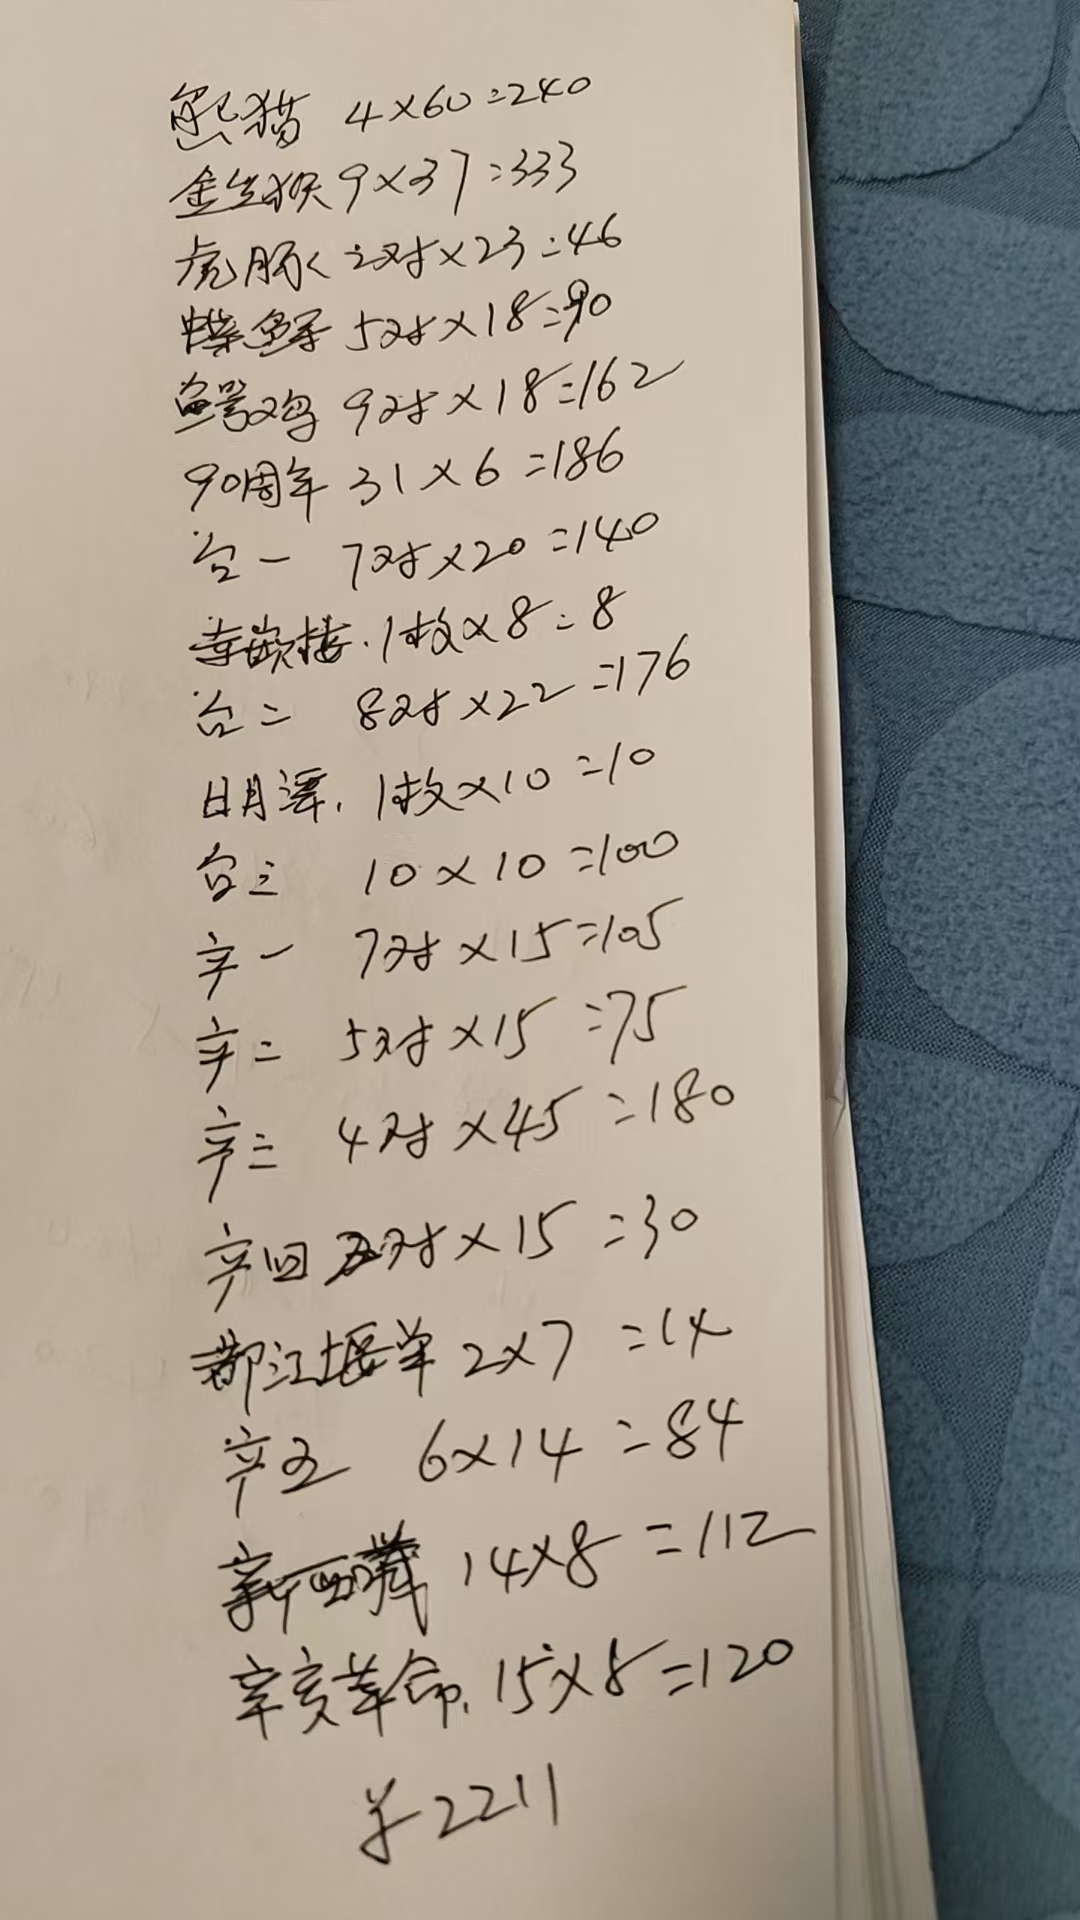 熊猫 4×60=240
金丝猴 9×37=333
虎豚 2对×23=46
蝶鲟 5对×18=90
鳄鸡 9对×18=162
90周年 31×6=186
台一 7对×20=140
寺嵌楼.1枚×8=8
台二 8对×22=176
日月潭.1枚×10=10
台三 10×10=100
辛一 7对×15=105
辛二 5对×15=75
辛三 4对×45=180
辛四 2对×15=30
都江堰单 2×7=14
辛五 6×14=84
14×8=112
辛亥革命.15×8=120
¥2211